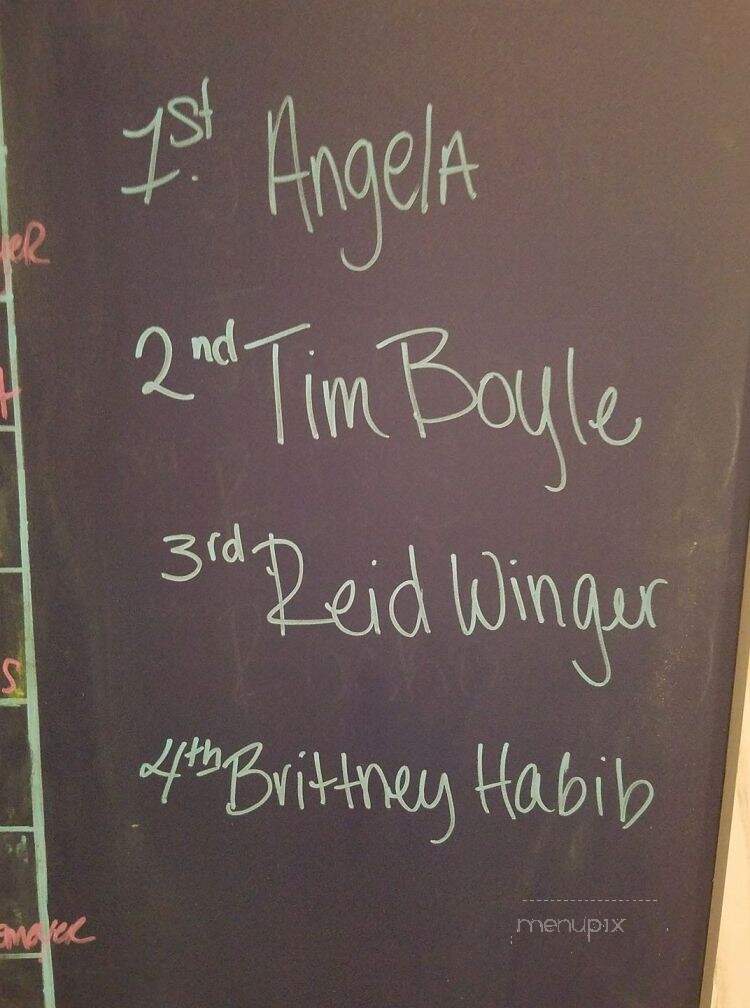 1st. Angela
2nd Tim Boyle
3rd Reid Winger
4th Brittney Habib
menupix